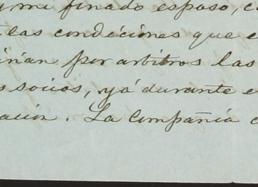 y mi finado esposo, c
las condiciones que e
inan por arbitros las
s socios, yá durante e
ación. La Compañía